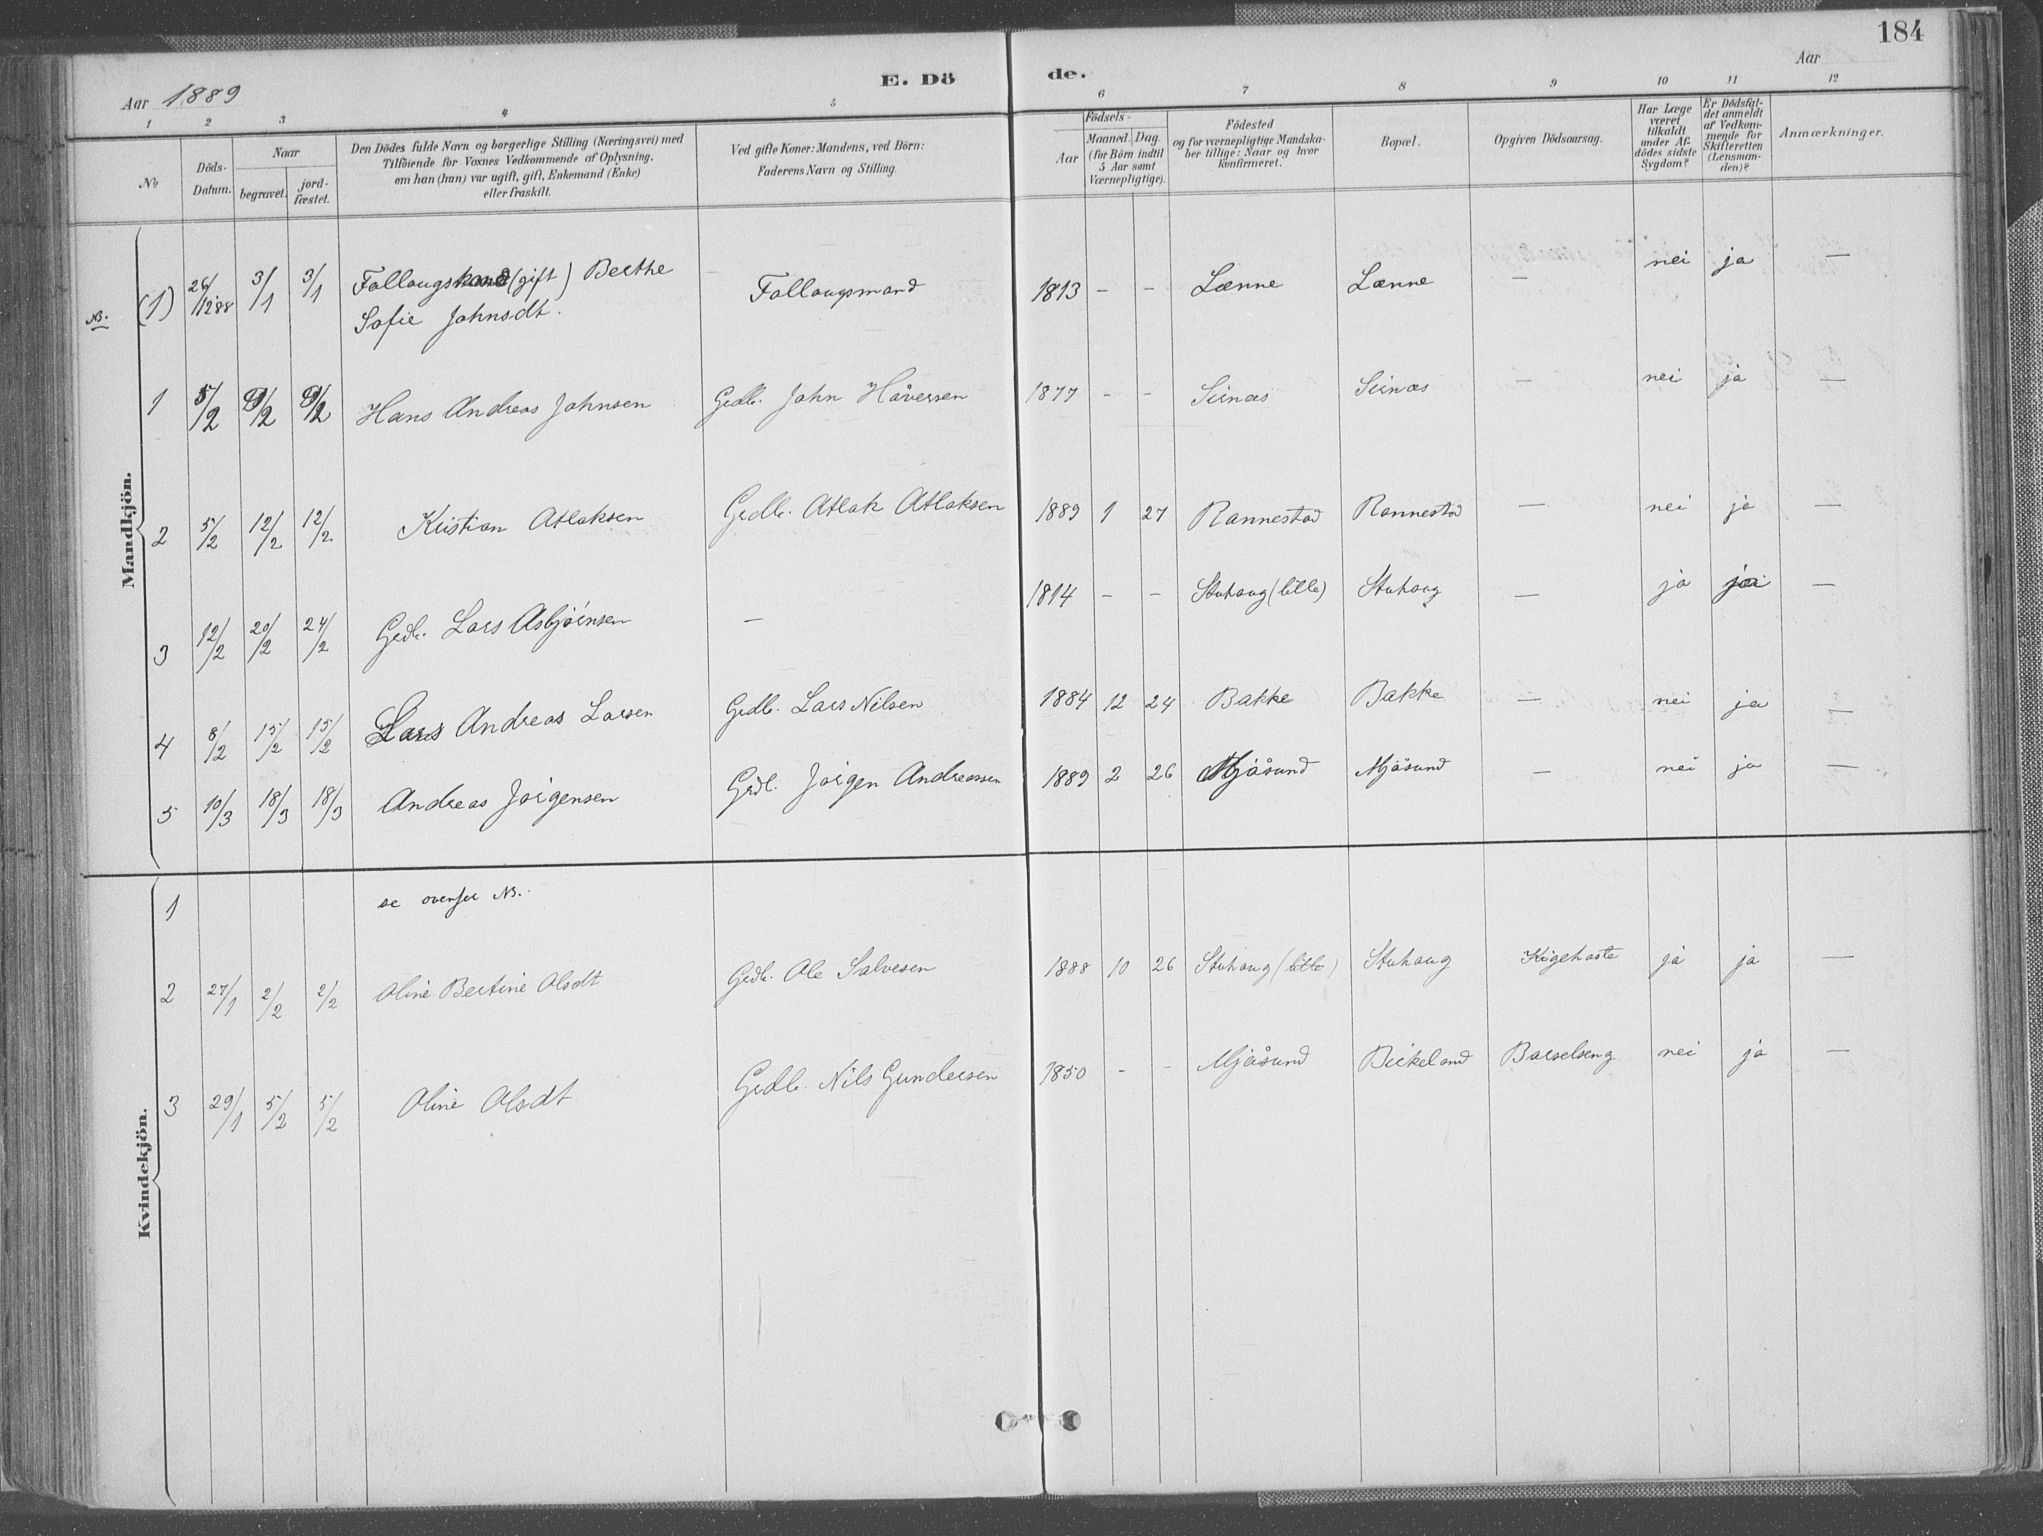 184
E. Dö de.
Aar 1889
Aar
1 2 3 4 5 6 7 8 9 10 11 12
No
Döds-Datum.
Naar
begravet.
jord-fæstet.
Den Dödes fulde Navn og borgerlige Stilling (Næringsvei) med
Tilföiende for Voxnes Vedkommende af Oplysning,
om han (hun) var ugift, gift, Enkemand (Enke)
eller fraskilt.
Ved gifte Koner: Mandens, ved Börn:
Faderens Navn og Stilling.
Födsels-
Aar
Maaned. Dag.
(for Börn indtil
5 Aar samt
Værnepligtige).
Födested
og for værnepligtige Mandska-
ber tillige: Naar og hvor
konfirmeret.
Bopæl.
Opgiven Dödsaarsag.
Har Læge
været
tilkaldt
under Af-
dödes sidste
Sygdom?
Er Dödsfal-
det anmeldt
af Vedkom-
mende for
Skifteretten
(Lensman-
den)?
Anmærkninger.
Mandkjön.
NB. (1) 26/12 88 3/1 3/1 (gift) Berthe Sofie Johnsdt. Follougsmand 1813 - - Lænne Lænne — nei ja —
1 5/2 9/2 9/2 Hans Andreas Johnsen Grdb. John Håversen 1877 - - Seirnæs Seirnæs — nei ja —
2 5/2 12/2 12/2 Kristian Atlaksen Grdb. Atlak Atlaksen 1889 1 27 Rannestad Rannestad — nei ja —
3 12/2 20/2 24/2 Grdb. Lars Asbjörnsen — 1814 - - Stuhaug (lille) Stuhaug — ja ja —
4 8/2 15/2 15/2 Lars Andreas Larsen Grdb. Lars Nilsen 1884 12 24 Bakke Bakke — nei ja —
5 10/3 18/3 18/3 Andreas Jörgensen Grdb. Jörgen Andreassen 1889 2 26 Mjåsund Mjåsund — nei ja —
Kvindekjön.
1 se ovenfor NB.
2 27/1 2/2 2/2 Oline Bertine Olsdt Grdb. Ole Salvesen 1888 10 26 Stuhaug (lille) Stuhaug Kigehoste ja ja —
3 29/1 5/2 5/2 Oline Olsdt Grdb. Nils Gundersen 1850 - - Mjåsund Birkeland Barselseng nei ja —